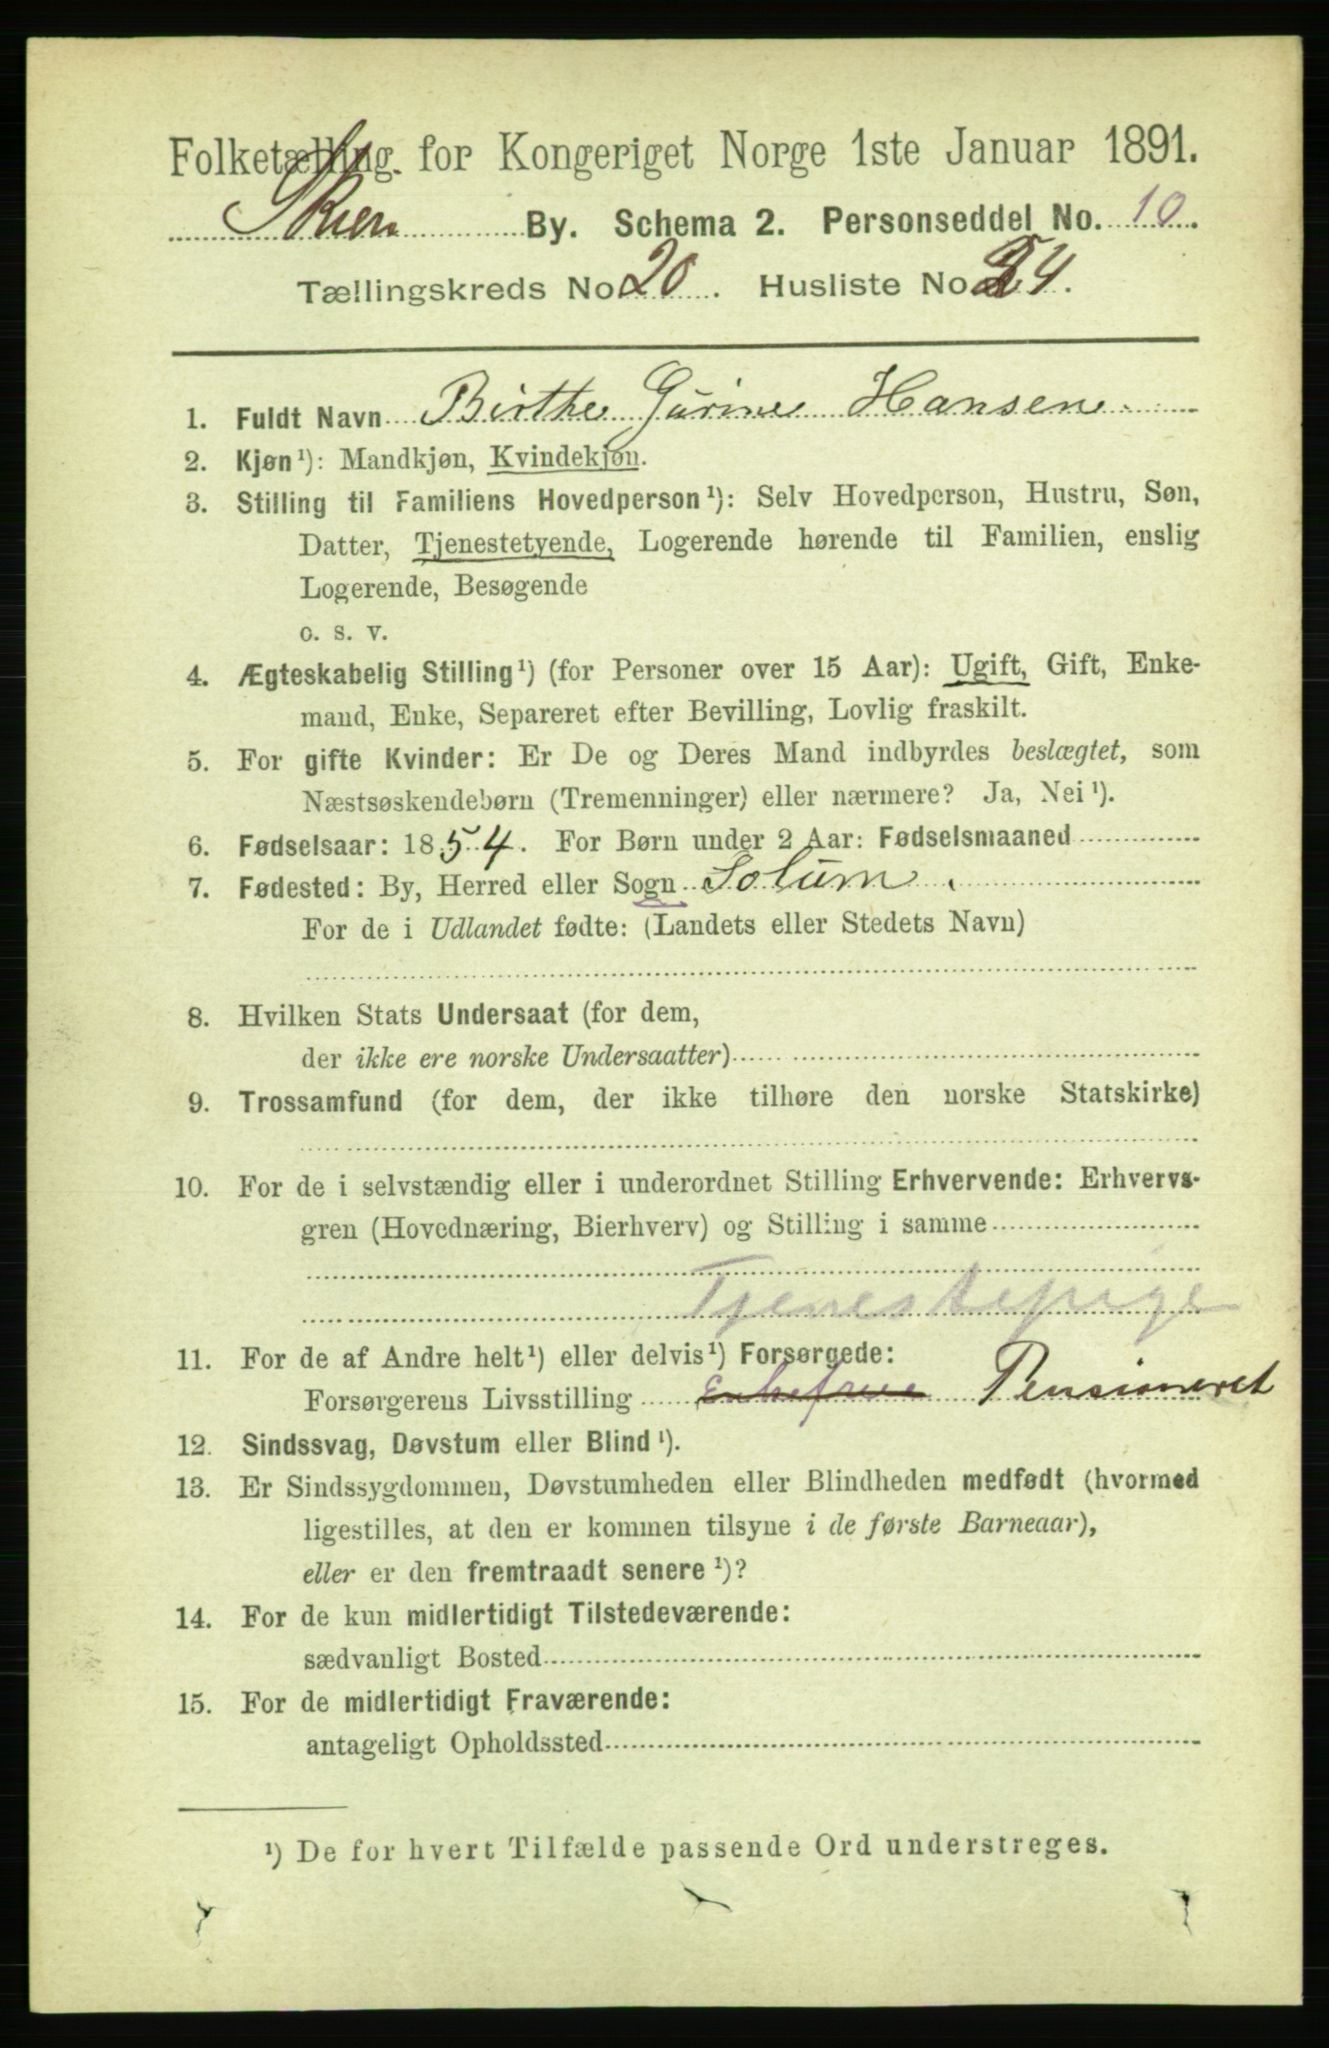 Folketælling for Kongeriget Norge 1ste Januar 1891.
Skien By. Schema 2. Personseddel No. 10.
Tællingskreds No 20. Husliste No 4.
1. Fuldt Navn Birthe Gurine Hansen
2. Kjøn¹): Mandkjøn, Kvindekjøn.
3. Stilling til Familiens Hovedperson¹): Selv Hovedperson, Hustru, Søn,
Datter, Tjenestetyende, Logerende hørende til Familien, enslig
Logerende, Besøgende
o. s. v.
4. Ægteskabelig Stilling¹) (for Personer over 15 Aar): Ugift, Gift, Enke-
mand, Enke, Separeret efter Bevilling, Lovlig fraskilt.
5. For gifte Kvinder: Er De og Deres Mand indbyrdes beslægtet, som
Næstsøskendebørn (Tremenninger) eller nærmere? Ja, Nei¹).
6. Fødselsaar: 1854. For Børn under 2 Aar: Fødselsmaaned
7. Fødested: By, Herred eller Sogn Solum.
For de i Udlandet fødte: (Landets eller Stedets Navn)
8. Hvilken Stats Undersaat (for dem,
der ikke ere norske Undersaatter)
9. Trossamfund (for dem, der ikke tilhøre den norske Statskirke)
10. For de i selvstændig eller i underordnet Stilling Erhvervende: Erhvervs-
gren (Hovednæring, Bierhverv) og Stilling i samme
Tjenestepige
11. For de af Andre helt¹) eller delvis¹) Forsørgede:
Forsørgerens Livsstilling Enkefrue Pensioneret
12. Sindssvag, Døvstum eller Blind¹).
13. Er Sindssygdommen, Døvstumheden eller Blindheden medfødt (hvormed
ligestilles, at den er kommen tilsyne i de første Barneaar),
eller er den fremtraadt senere¹)?
14. For de kun midlertidigt Tilstedeværende:
sædvanligt Bosted
15. For de midlertidigt Fraværende:
antageligt Opholdssted
¹) De for hvert Tilfælde passende Ord understreges.